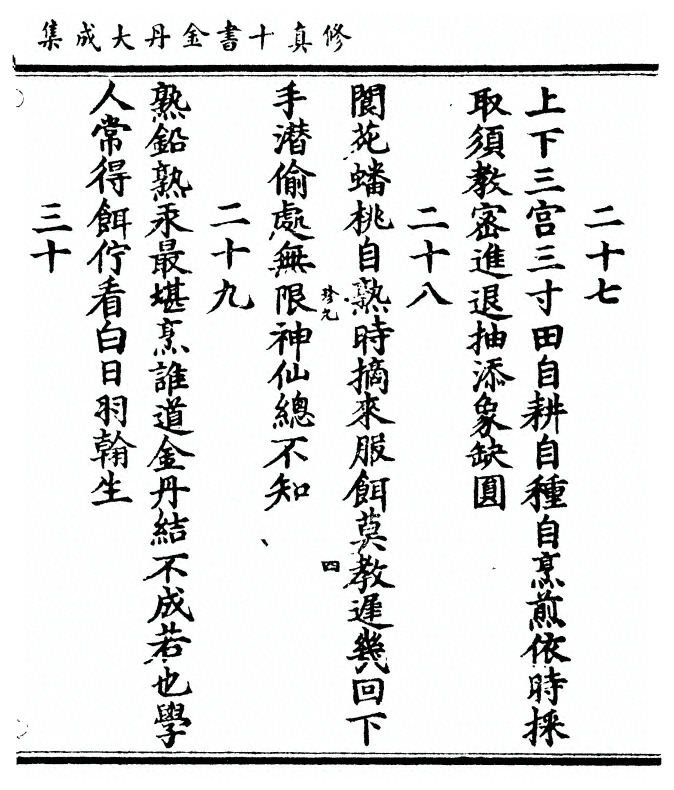 修真十書金丹大成集
二十七
上下三宫三寸田自耕自種自烹煎依時採
取須教密進退抽添象缺圓
二十八
閬苑蟠桃自熟時摘來服餌莫教遲幾回下
手潛偷處無限神仙總不知
珍九
四
二十九
熟鉛熟汞最堪烹誰道金丹結不成若也學
人常得餌佇看白日羽翰生
三十